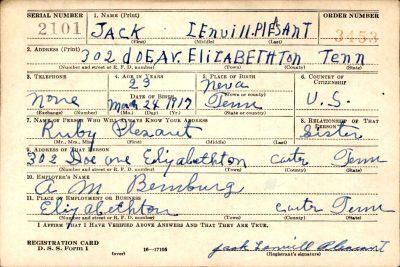 SERIAL NUMBER 1. NAME (Print) ORDER NUMBER
2101 JACK LENVILL PLEASANT 3453
(First) (Middle) (Last)
2. ADDRESS (Print)
302 DOE AV. ELIZABETHTON TENN
(Number and street or R. F. D. number) (Town) (County) (State)
3. TELEPHONE 4. AGE IN YEARS 5. PLACE OF BIRTH 6. COUNTRY OF CITIZENSHIP
23 Neva
DATE OF BIRTH (Town or county)
None Mar 24 1917 Tenn U.S.
(Exchange) (Number) (Mo.) (Day) (Yr.) (State or country)
7. NAME OF PERSON WHO WILL ALWAYS KNOW YOUR ADDRESS 8. RELATIONSHIP OF THAT PERSON
Ruby Plesant Sister
(Mr., Mrs., Miss) (First) (Middle) (Last)
9. ADDRESS OF THAT PERSON
302 Doe ave Elizabethton Carter Tenn
(Number and street or R. F. D. number) (Town) (County) (State)
10. EMPLOYER'S NAME
A M Bemburg
11. PLACE OF EMPLOYMENT OR BUSINESS
Elizabethton Carter Tenn
(Number and street or R. F. D. number) (Town) (County) (State)
I AFFIRM THAT I HAVE VERIFIED ABOVE ANSWERS AND THAT THEY ARE TRUE.
REGISTRATION CARD
D. S. S. Form 1 (over) 16—17105 Jack Lenvill Pleasant
(Registrant's signature)